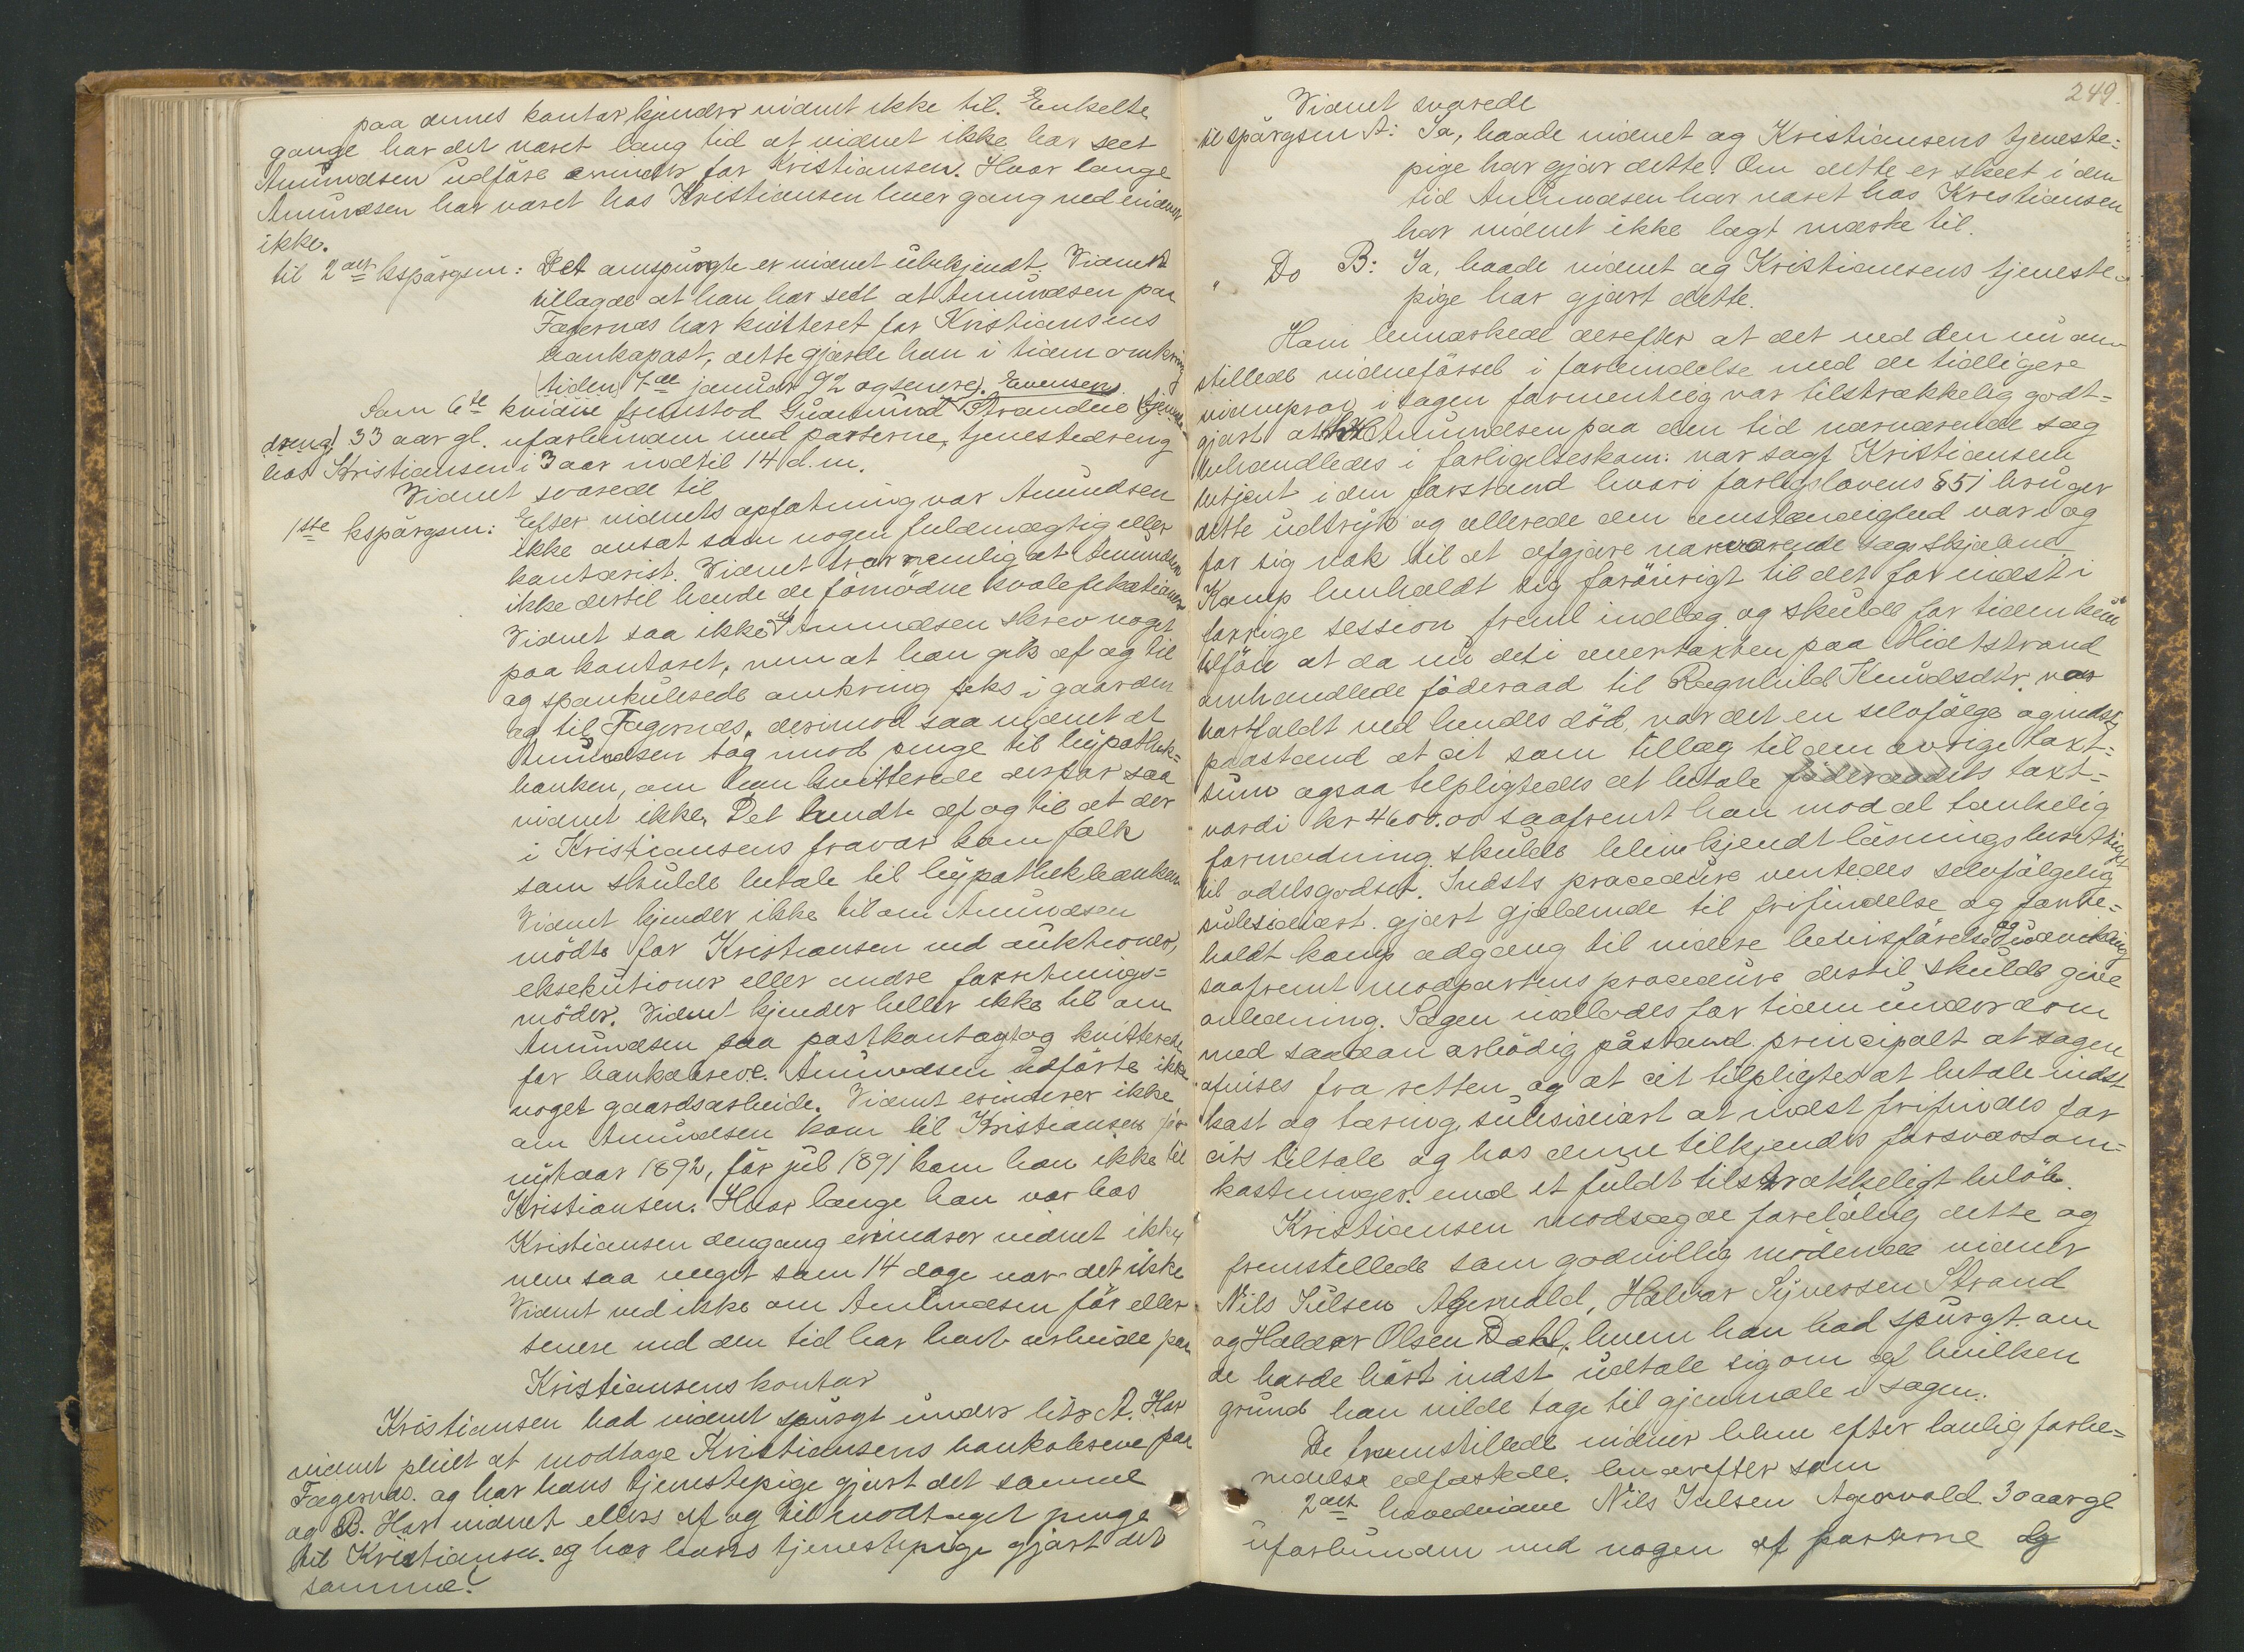 paa dennes kontor, kjender vidnet ikke til. Enkelte
gange har det været lang tid at vidnet ikke har seet
Amundsen udføre erinder for Kristiansen. Hvor længe
Amundsen har været hos Kristiansen hver gang ved vidnet
ikke.
til 2det kspørgsm: Det omspurgte er vidnet ubekjendt. Vidnet
tillagde at han har seet at Amundsen paa
Fagernæs har kvitteret for Kristiansens
bankopost, dette gjorde han i tiden omkring
(tiden 7de januar 92 og senere). Evensen
Som 6te kvidne fremstod Gudmund Strande (tjeneste
dreng) 33 aar gl. uforbunden med parterne, tjenestedreng
hos Kristiansen i 3 aar indtil 14 d.m.
Vidnet svarede til
1ste kspørgsm: Efter vidnets opfatning var Amundsen
ikke ansat som nogen fuldmægtig eller
kontorist. Vidnet tror nemlig at Amundsen
ikke dertil havde de fornødne kvalefikationer
Vidnet saa ikke at Amundsen skrev noget
paa kontoret, men at han gik af og til
og spankulerede omkring feks i gaarden
og til Fagernæs, derimod saa vidnet at
Amundsen tog mod penge til hypothek=
banken, om han kvitterede derfor saa
vidnet ikke. Det hendte af og til at der
i Kristiansens fravær kom folk
som skulde betale til hypothekbanken
Vidnet kjender ikke til om Amundsen
mødte for Kristiansen ved auktioner,
eksekutioner eller andre forretnings=
møder. Vidnet kjender heller ikke til om
Amundsen paa postkontoret og kvitterede
for bankobreve. Amundsen udførte ikke
noget gaardsarbeide. Vidnet erindrer ikke
om Amundsen kom til Kristiansen før
nytaar 1892, før jul 1891 kom han ikke til
Kristiansen. Hvor længe han var hos
Kristiansen dengang erindrer vidnet ikke
men saa meget som 14 dage var det ikke
Vidnet ved ikke om Amundsen før eller
senere end den tid har havt arbeide paa
Kristiansens kontor
Kristiansen bad vidnet spurgt under litr A. Har
vidnet pleiet at modtage Kristiansens bankobreve paa
Fagernæs. og har hans tjenestepige gjort det samme
og B. Har vidnet ellers af og til modtaget penge
til Kristiansen. og har hans tjenestepige gjort det
samme?
249.
Vidnet svarede
til spørgsm A: Ja, baade vidnet og Kristiansens tjeneste=
pige har gjør dette. Om dette er skeet i den
tid Amundsen har været hos Kristiansen
har vidnet ikke lagt mærke til.
" Do B: Ja, baade vidnet og Kristiansens tjeneste=
pige har gjort dette.
Ham bemærkede derefter at det ved den nu an=
stillede vidneførsel i forbindelse med de tidligere
vidneprov i sagen formentlig var tilstrækkelig godt=
gjort at Amundsen paa den tid nærværende sag
behandledes i forligelseskom: var sagf Kristiansen
betjent i den forstand hvori forligslovens § 51 bruger
dette udtryk og allerede den omstændighed var i og
for sig nok til at afgjøre nærværende sags skjæbne
Kamp henholdt sig forøvrigt til det for indst i
forrige session freml indlæg og skulde for tiden kun
tilføie at da nu det i overtaxten paa Midtstrand
omhandlede føderaad til Ragnhild Knudsdtr. var
bortfaldt ved hendes død, var det en selvfølge og indst
paastand at cit som tillæg til den øvrige taxt=
sum ogsaa tilpligtedes at betale føderaadets taxt=
værdi kr 4600.00 saafremt han mod al tænkelig
formodning skulde blive kjendt løsningsberettiget
til odelsgodset. Indsts procedure ventedes selvfølgelig
subsidiært gjort gjældende til frifindelse og forbe=
holdt kamp adgang til videre bevisførelse og udvikling
saafremt modpartens procedure dertil skulde give
anledning. Sagen indlodes for tiden under dom
med saadan ærbødig påstand principalt at sagen
afvises fra retten og at cit tilpligtes at betale indst
kost og tæring, subsidiært at indst frifindes for
cits tiltale og hos denne tilkjendes forsvarsom=
kostninger med et fuldt tilstrækkeligt beløb.
Kristiansen modsagde foreløbig dette og
fremstillede som godvillig mødende vidner
Nils Julsen Agervold, Halvor Syversen Strand
og Haldor Olsen Dahl, hvem han bad spurgt om
de havde hørt indst udtale sig om af hvilken
grund han vilde tage til gjenmæle i sagen.
De fremstillede vidner blev efter lovlig forbe=
redelse edfæstede. hvorefter som
2det hovedvidne Nils Julsen Agervold 30 aar gl
uforbunden med nogen af parterne og